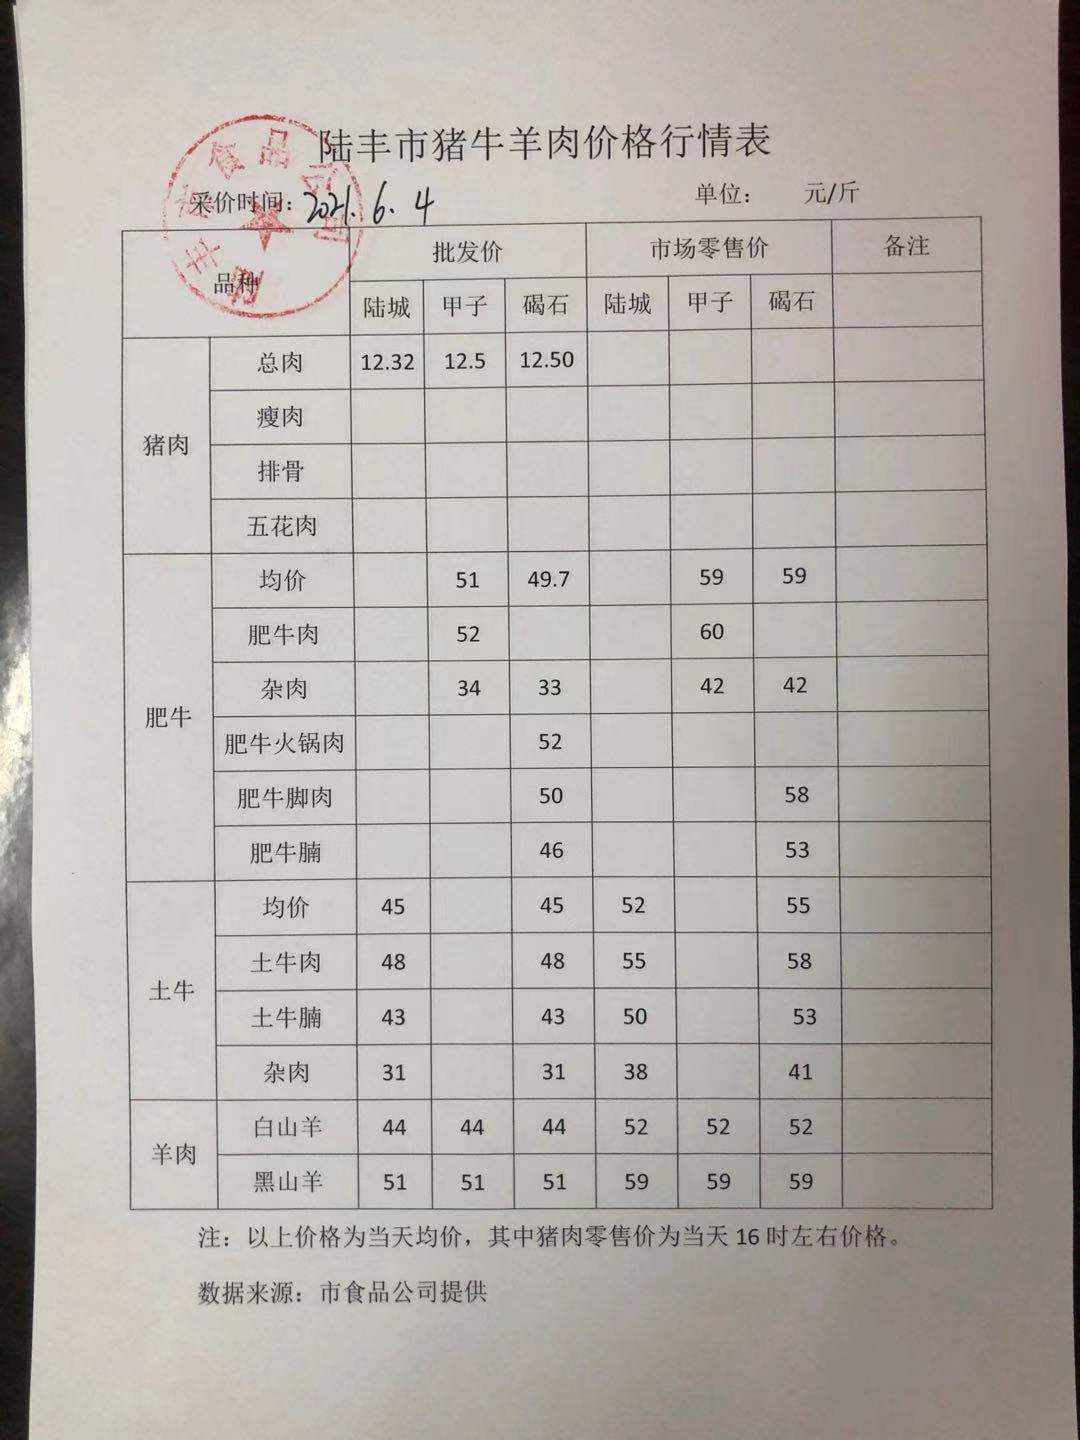 陆丰市猪牛羊肉价格行情表
陆丰市食品公司
采价时间：2021.6.4 单位： 元/斤
品种 批发价 市场零售价 备注
陆城 甲子 碣石 陆城 甲子 碣石
猪肉 总肉 12.32 12.5 12.50
瘦肉
排骨
五花肉
肥牛 均价 51 49.7 59 59
肥牛肉 52 60
杂肉 34 33 42 42
肥牛火锅肉 52
肥牛脚肉 50 58
肥牛腩 46 53
土牛 均价 45 45 52 55
土牛肉 48 48 55 58
土牛腩 43 43 50 53
杂肉 31 31 38 41
羊肉 白山羊 44 44 44 52 52 52
黑山羊 51 51 51 59 59 59
注：以上价格为当天均价，其中猪肉零售价为当天 16 时左右价格。
数据来源：市食品公司提供